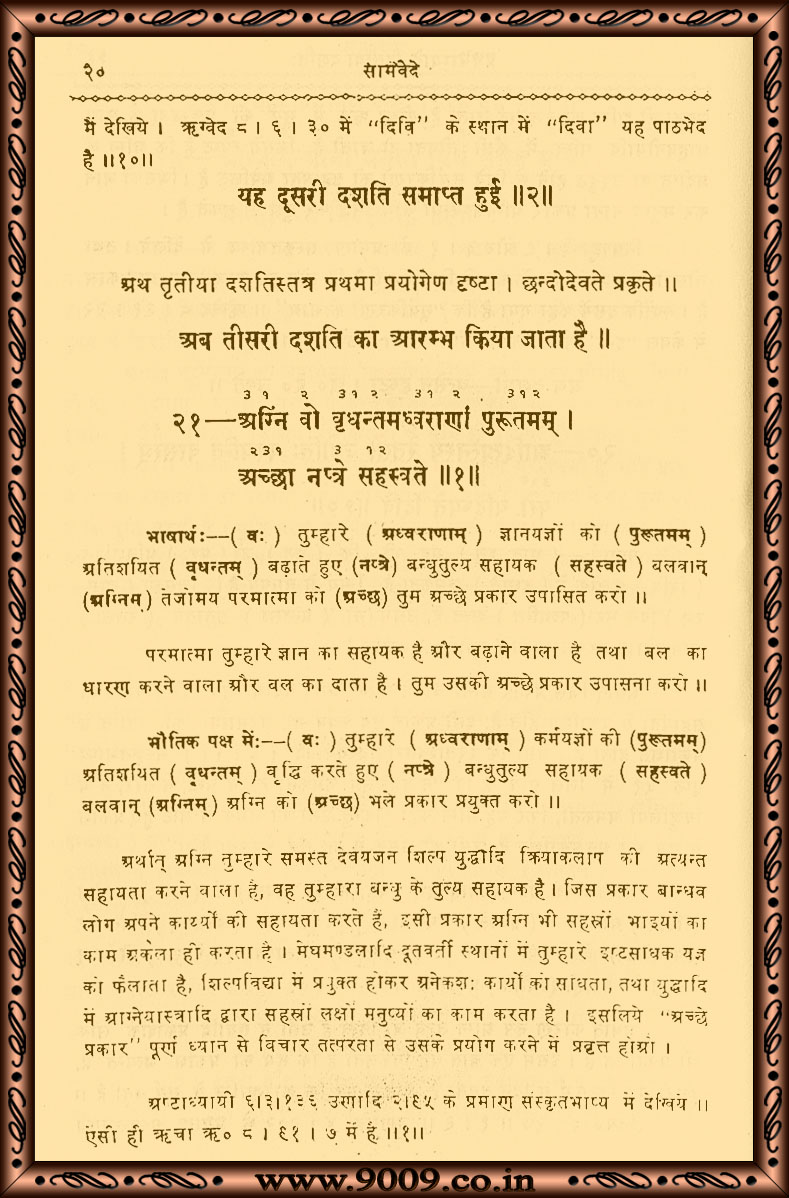 २० सामवेदे
में देखिये । ऋग्वेद ८ । ६ । ३० में “दिवि” के स्थान में “दिवा” यह पाठभेद
है ॥१०॥
यह दूसरी दशति समाप्त हुई ॥२॥
अथ तृतीया दशतिस्तत्र प्रथमा प्रयोगेण दृष्टा । छन्दोदेवते प्रकृते ॥
अब तीसरी दशति का आरम्भ किया जाता है ॥
३ १ २ ३१ २ ३१ २ ३१२
२१—अग्निं वो वृधन्तमध्वराणां पुरूतमम् ।
२३१ ३ १२
अच्छा नप्त्रे सहस्वते ॥१॥
भाषार्थः—( वः ) तुम्हारे ( अध्वराणाम् ) ज्ञानयज्ञों को ( पुरूतमम् )
अतिशयित ( वृधन्तम् ) बढ़ाते हुए (नप्त्रे) बन्धुतुल्य सहायक ( सहस्वते ) बलवान्
(अग्निम्) तेजोमय परमात्मा को (अच्छ) तुम अच्छे प्रकार उपासित करो ॥
परमात्मा तुम्हारे ज्ञान का सहायक है और बढ़ाने वाला है तथा बल का
धारण करने वाला और बल का दाता है । तुम उसकी अच्छे प्रकार उपासना करो ॥
भौतिक पक्ष में:—( वः ) तुम्हारे ( अध्वराणाम् ) कर्मयज्ञों की (पुरूतमम्)
अतिशयित ( वृधन्तम् ) वृद्धि करते हुए ( नप्त्रे ) बन्धुतुल्य सहायक ( सहस्वते )
बलवान् (अग्निम्) अग्नि को (अच्छ) भले प्रकार प्रयुक्त करो ॥
अर्थात् अग्नि तुम्हारे समस्त देवयजन शिल्प युद्धादि क्रियाकलाप की अत्यन्त
सहायता करने वाला है, वह तुम्हारा बन्धु के तुल्य सहायक है । जिस प्रकार बान्धव
लोग अपने कार्य्यों की सहायता करते हैं, इसी प्रकार अग्नि भी सहस्रों भाइयों का
काम अकेला ही करता है । मेघमण्डलादि दूतवर्ती स्थानों में तुम्हारे इष्टसाधक यज्ञ
को फैलाता है, शिल्पविद्या में प्रयुक्त होकर अनेकशः कार्यों को साधता, तथा युद्धादि
में आग्नेयास्त्रादि द्वारा सहस्रों लक्षों मनुष्यों का काम करता है । इसलिये “अच्छे
प्रकार” पूर्ण ध्यान से विचार तत्परता से उसके प्रयोग करने में प्रवृत्त होओ ।
अष्टाध्यायी ६।३।१३६ उणादि २।९५ के प्रमाण संस्कृतभाष्य में देखिये ॥
ऐसी ही ऋचा ऋ० ८ । ९१ । ७ में है ॥१॥
www.9009.co.in